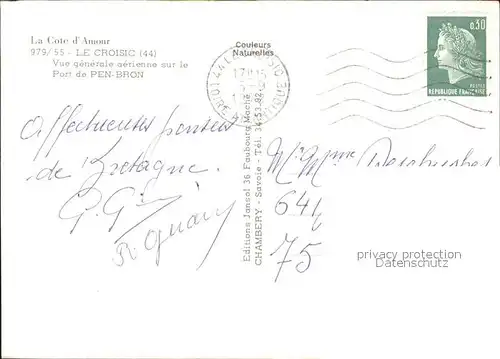 La Côte d'Amour
979/55 - LE CROISIC (44)
Vue générale aérienne sur le
Port de PEN-BRON
Couleurs
Naturelles
0,30
POSTES
RÉPUBLIQUE FRANÇAISE
17H15
Affectueuses pensées
de Bretagne.
Editions Jansol 36 Faubourg Maché
CHAMBERY - Savoie - Tél. 34-53-92
Mr Mme
641
75
privacy protection
Datenschutz